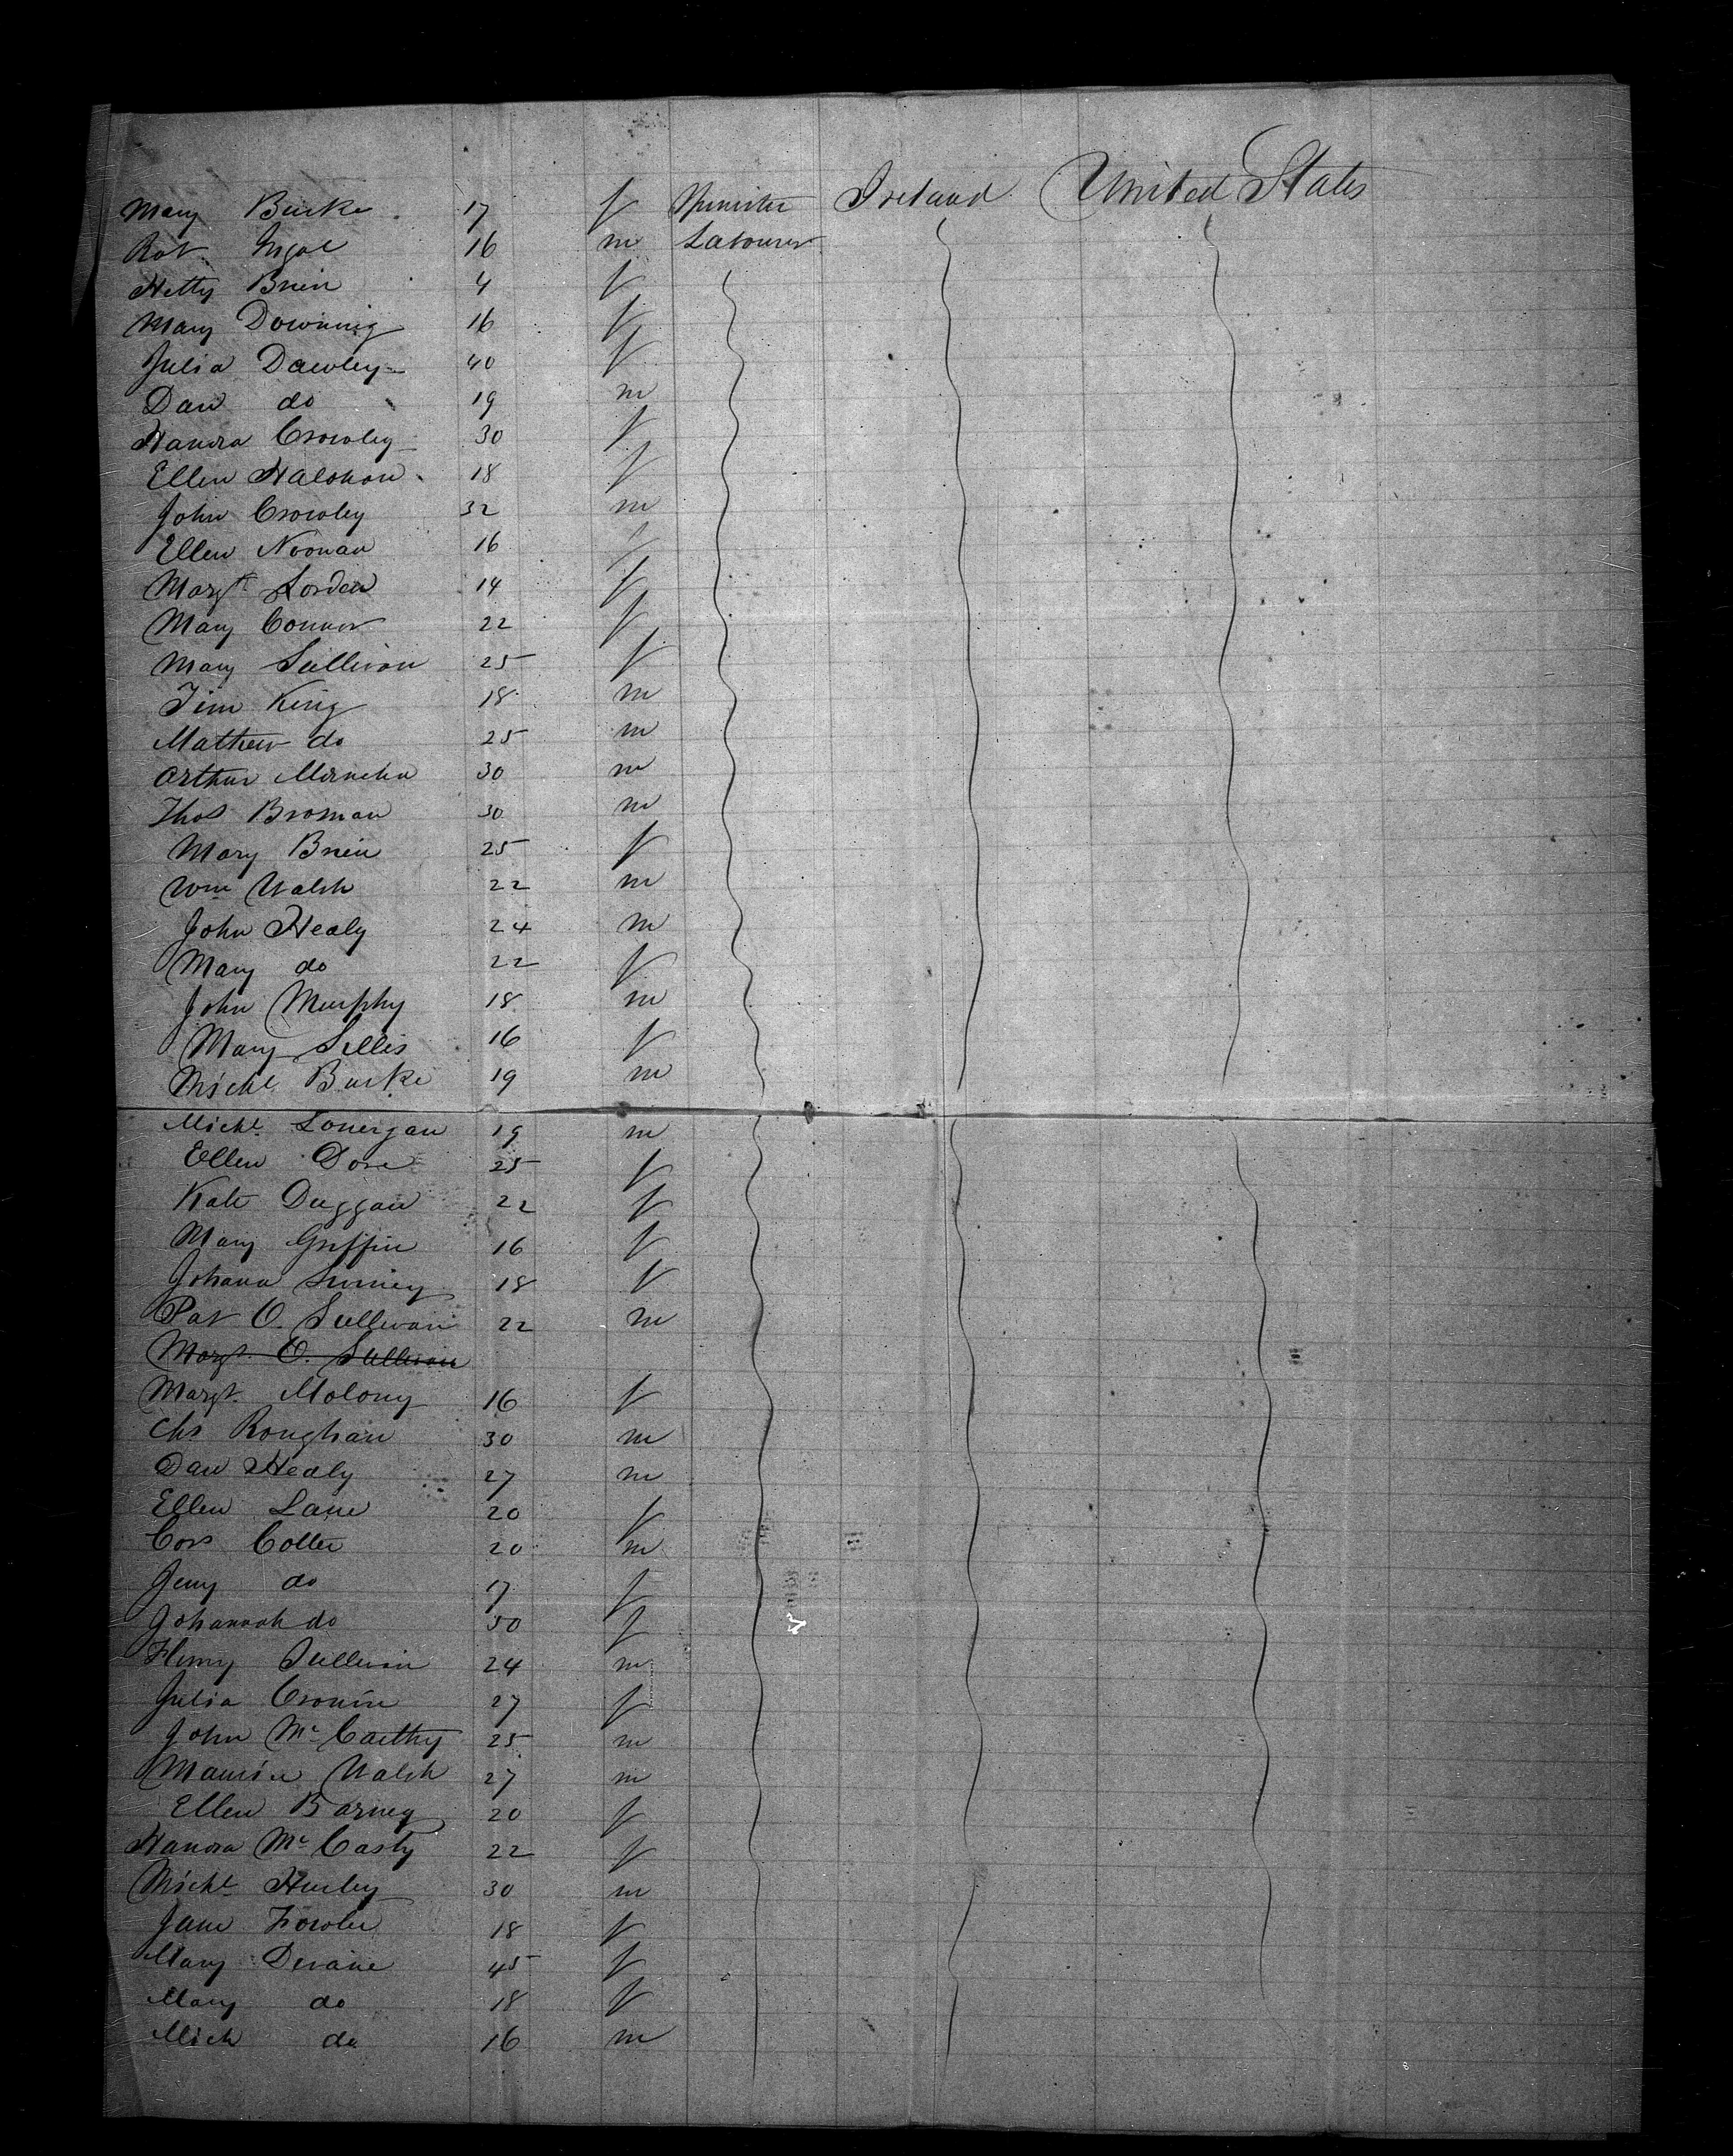 Mary Burke 17 f Spinster Ireland United States
Robt 16 m Labourer
Hetty Brien 4 f
Mary Downing 16 f
Julia Dawley 40 f
Dan do 19 m
Hanora Crowley 30 f
Ellen Halohan 18 f
John Crowley 32 m
Ellen Noonan 16 f
Margt Lorden 14 f
Mary Connor 22 f
Mary Sullivan 25 f
Tim King 18 m
Mathew do 25 m
Arthur 30 m
Thos Brosnan 30 m
Mary Brien 25 f
Wm Walsh 22 m
John Healy 24 m
Mary do 22 f
John Murphy 18 m
Mary Lillis 16 f
Michl Burke 19 m
Michl Lonergan 19 m
Ellen Dore 25 f
Kate Duggan 22 f
Mary Griffin 16 f
Johana 18 f
Pat O. Sullivan 22 m
Margt. O. Sullivan
Margt. Molony 16 f
Chs Roughan 30 m
Dan Healy 27 m
Ellen Lane 20 f
Cors Colter 20 m
Jeny do 17 f
Johannah do 50 f
Henry Sullivan 24 m
Julia Cronin 27 f
John Mc Carthy 25 m
Maurice Walsh 27 m
Ellen Barney 20 f
Hanora Mc Carty 22 f
Michl Hurley 30 m
Jane Fowler 18 f
Mary Devane 45 f
Mary do 18 f
Mich do 16 m